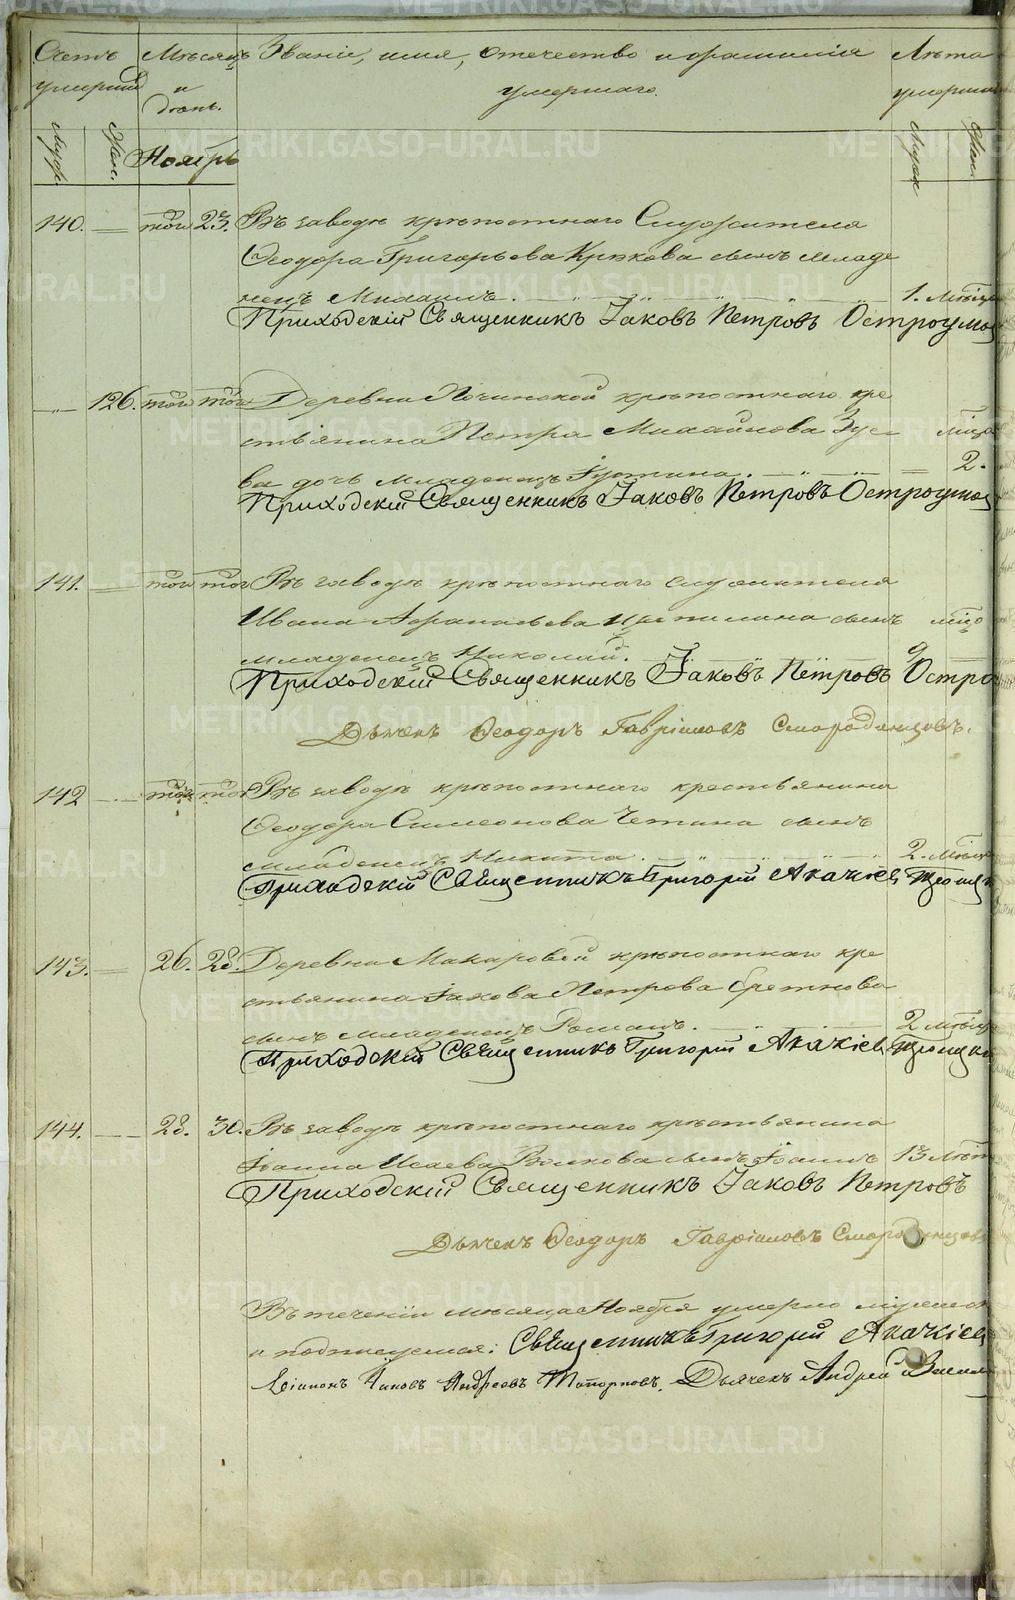 Счетъ умершихъ Мѣсяцъ и день. Званіе, имя, отечество и фамилія умершаго. Лѣта
Муж. Жен. Ноябрь
140. — той 23. Въ заводѣ крѣпостнаго Служителя
Ѳеодора Григорьева Крюкова сынъ младе
нецъ Михаилъ. 1. мѣсяц
Приходскій Священникъ Іаковъ Петровъ Остроумов
126. той той Деревни Починской крѣпостнаго кре
стьянина Петра Михайлова Зуе-
ва дочь младенецъ Іустина. 2.
Приходскій Священникъ Іаковъ Петровъ Остроумов
141. той той Въ заводѣ крѣпостнаго служителя
Ивана Афанасьева сынъ
младенецъ Николай. 9
Приходскій Священникъ Іаковъ Петровъ Остро
Дьячекъ Ѳеодоръ Гавріиловъ Смородинцовъ.
142 той той Въ заводѣ крѣпостнаго крестьянина
Ѳеодора Симеонова Четина сынъ
младенецъ Никита. 2. мѣсяц
Приходскій Священникъ Григорій Акакіев
143. 26. 28. Деревни Макаровой крѣпостнаго кре
стьянина Іакова Петрова
сынъ младенецъ Романъ. 2 мѣсяц
Приходскій Священникъ Григорій Акакіев
144. 28. 30. Въ заводѣ крѣпостнаго крестьянина
Іоанна Исаева Волкова сынъ Іоаннъ 13 лѣт
Приходскій Священникъ Іаковъ Петровъ
Дьячекъ Ѳеодоръ Гавріиловъ Смородинцовъ
Въ теченіи мѣсяца Ноября умерло мужеск
Священникъ Григорій Акакіев
Діаконъ Іаковъ Андреевъ Топорковъ. Дьячекъ Андрей Васил
METRIKI.GASO-URAL.RU